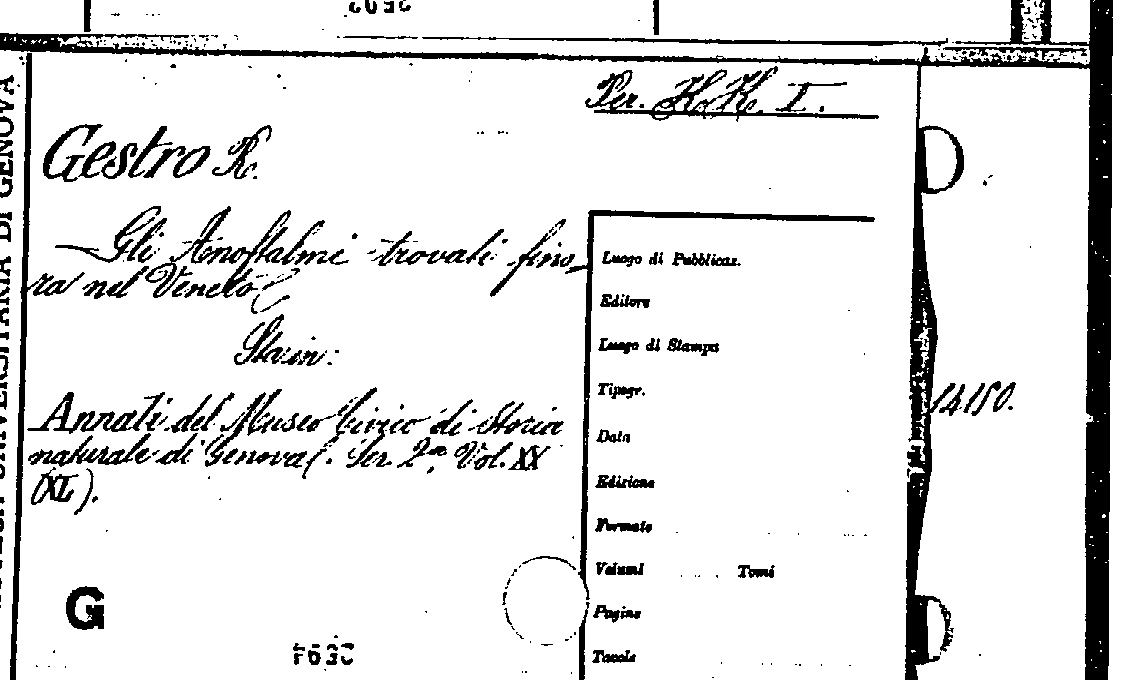 Per. H.H. I.
Gestro R.
— Gli Anoftalmi trovati fino-
ra nel Veneto
Sta in:
Annali del Museo Civico di Storia
naturale di Genova (. Ser. 2ª, Vol. XX
(XL).
G
Luogo di Pubblicaz.
Editore
Luogo di Stampa
Tipogr.
Data
Edizione
Formato
Volumi Tomi
Pagine
Tavole
14150.
UNIVERSITARIA DI GENOVA